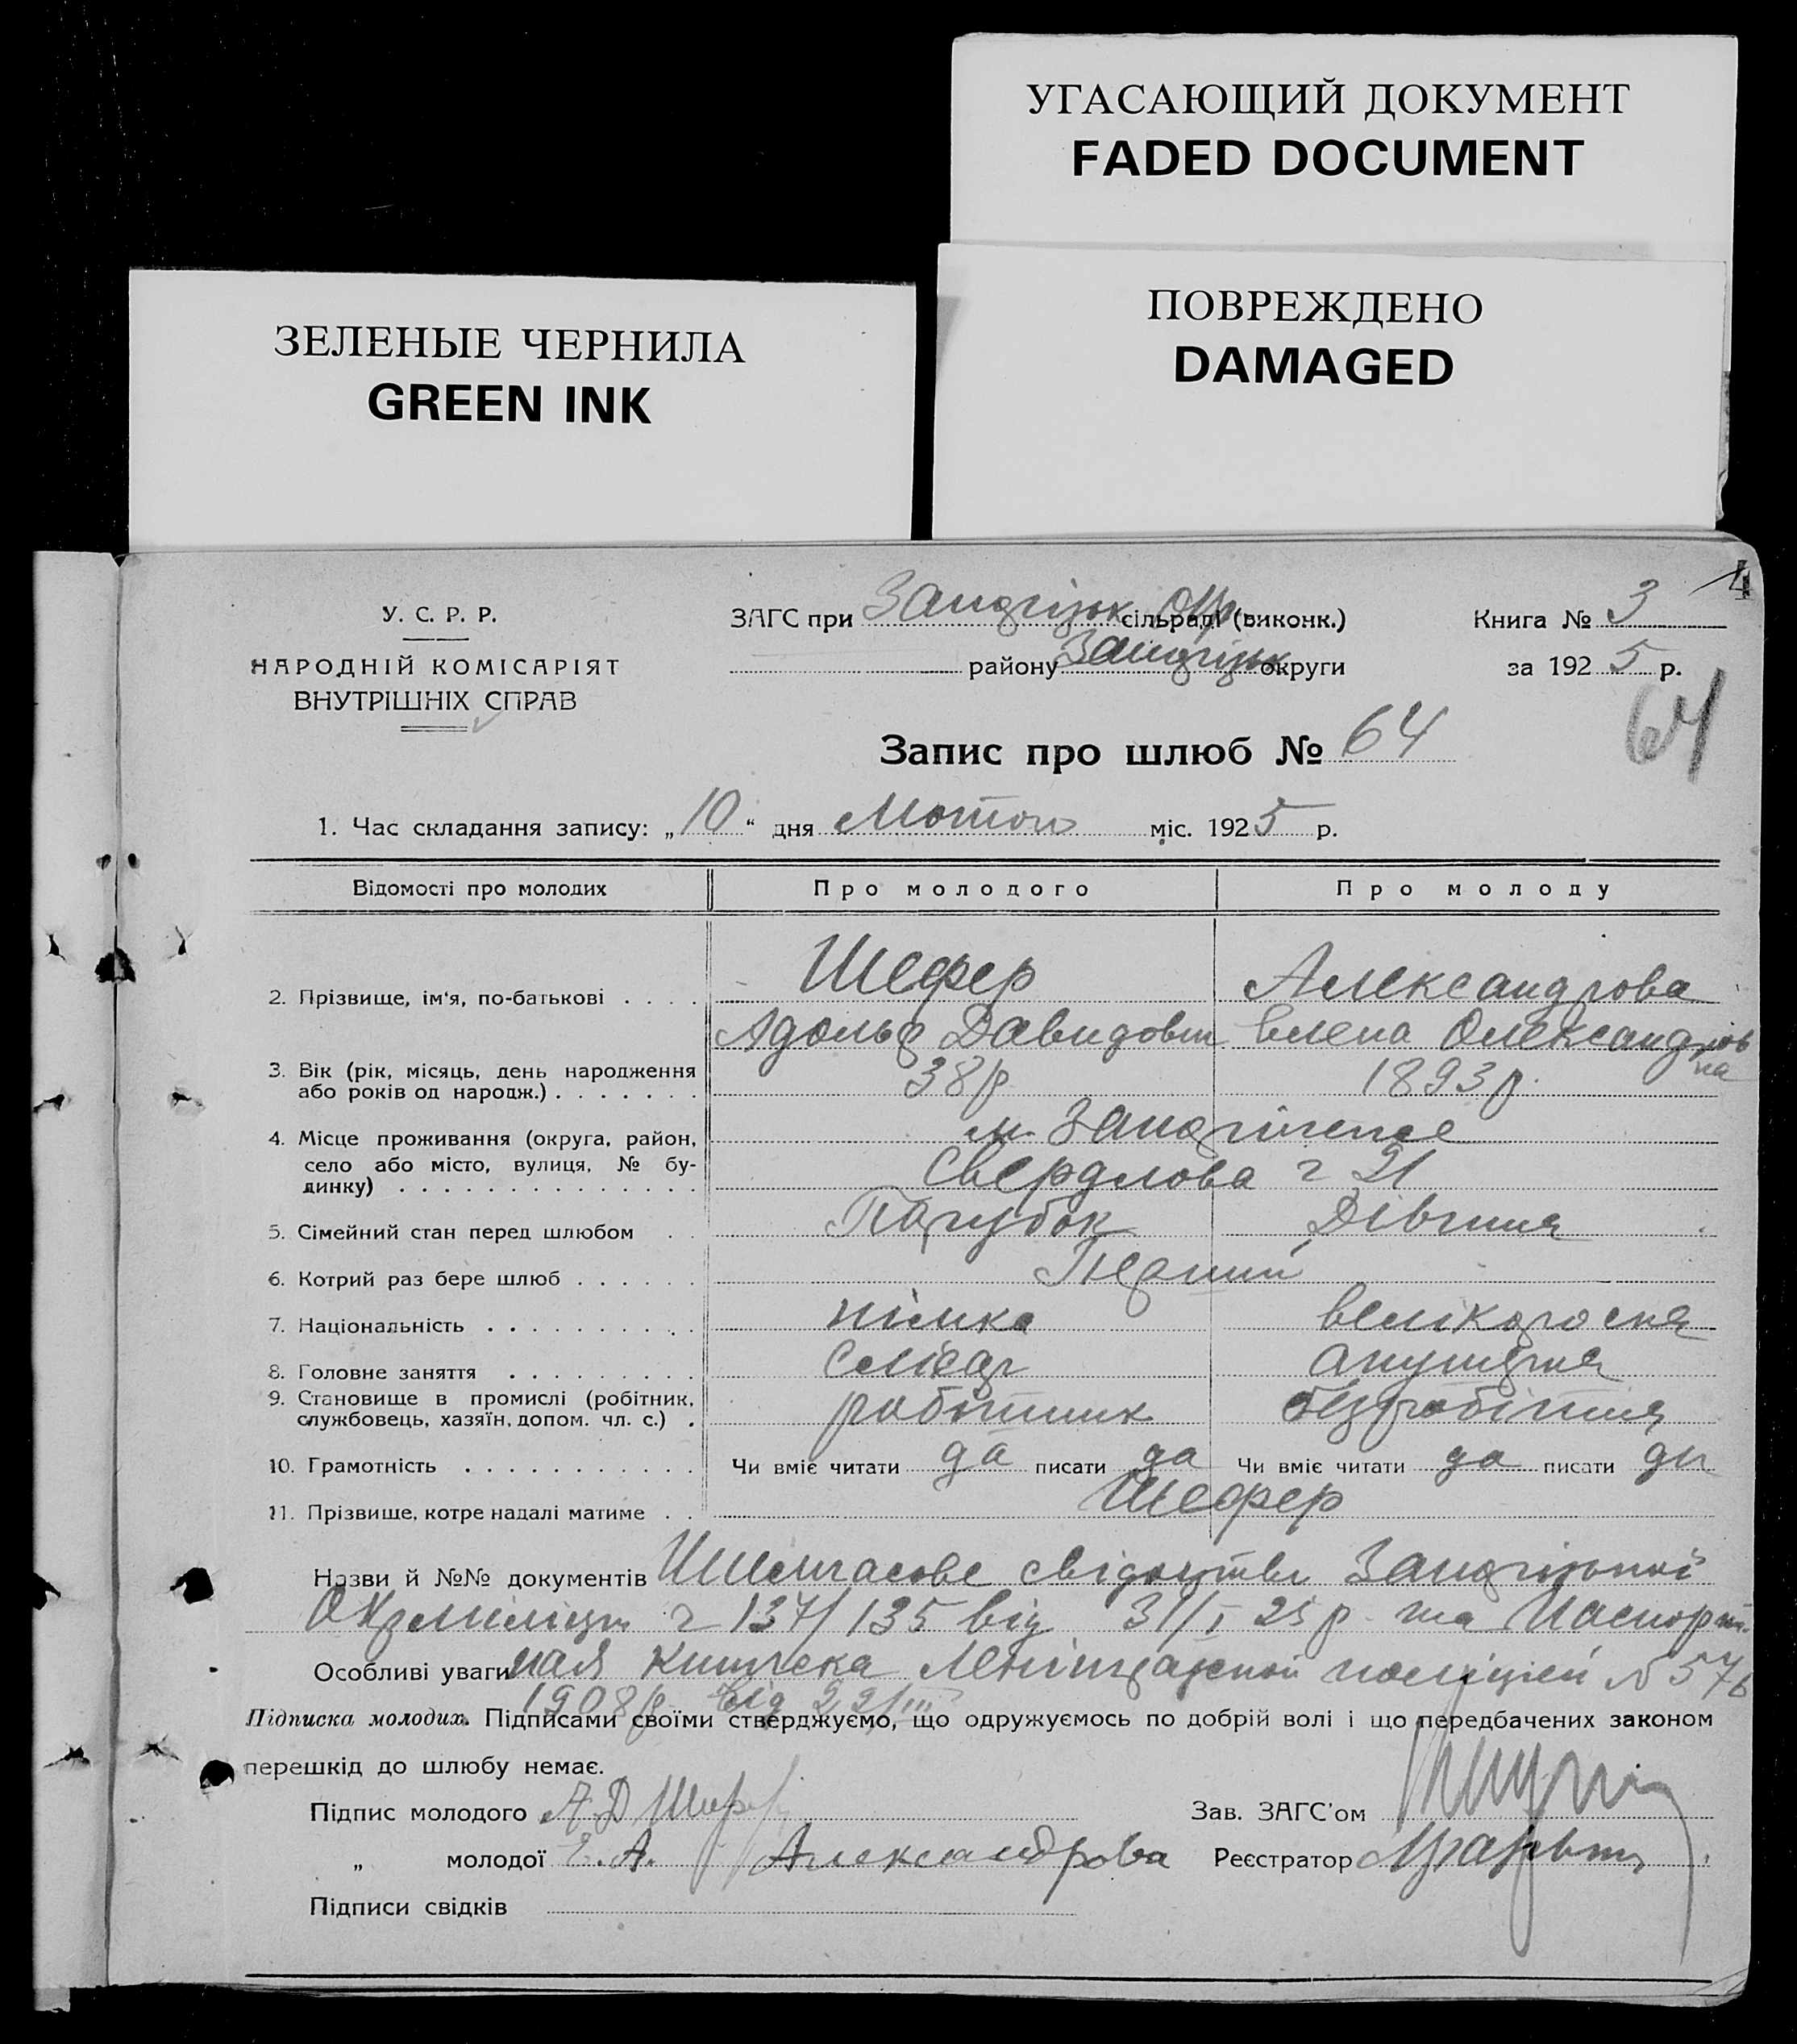 УГАСАЮЩИЙ ДОКУМЕНТ
FADED DOCUMENT
ПОВРЕЖДЕНО
DAMAGED
ЗЕЛЕНЫЕ ЧЕРНИЛА
GREEN INK
4
У. С. Р. Р.
НАРОДНІЙ КОМІСАРІЯТ
ВНУТРІШНІХ СПРАВ
ЗАГС при сільраді (виконк.)
району округи
Книга № 3
за 1925 р.
64
Запис про шлюб № 64
1. Час складання запису: „10“ дня Лютого міс. 1925 р.
Відомості про молодих Про молодого Про молоду
2. Прізвище, ім‘я, по-батькові Шефер Александрова
Адольф Давидович Елена Олександровна
3. Вік (рік, місяць, день народження
або років од народж.) 38 р. 1893 р.
4. Місце проживання (округа, район,
село або місто, вулиця, № бу-
динку)
м. Запоріжжє
Свердлова ч 21
5. Сімейний стан перед шлюбом Парубок Дівчина
6. Котрий раз бере шлюб Перший
7. Національність німка великоросія
8. Головне заняття слюсар акушерка
9. Становище в промислі (робітник,
службовець, хазяїн, допом. чл. с.) робітник безробітня
10. Грамотність Чи вміє читати да писати да Чи вміє читати да писати да
11. Прізвище, котре надалі матиме Шефер
Назви й №№ документів свідоцтво Запорізької
Окрміліції ч 137/135 від 31/I 25 р. та Паспорт
Особливі уваги ная книжка поліцией № 576
1908 р. від 22/III
Підписка молодих. Підписами своїми стверджуємо, що одружуємось по добрій волі і що передбачених законом
перешкід до шлюбу немає.
Підпис молодого А. Д. Шефер Зав. ЗАГС'ом
„ молодої Е. А. Александрова Реєстратор
Підписи свідків